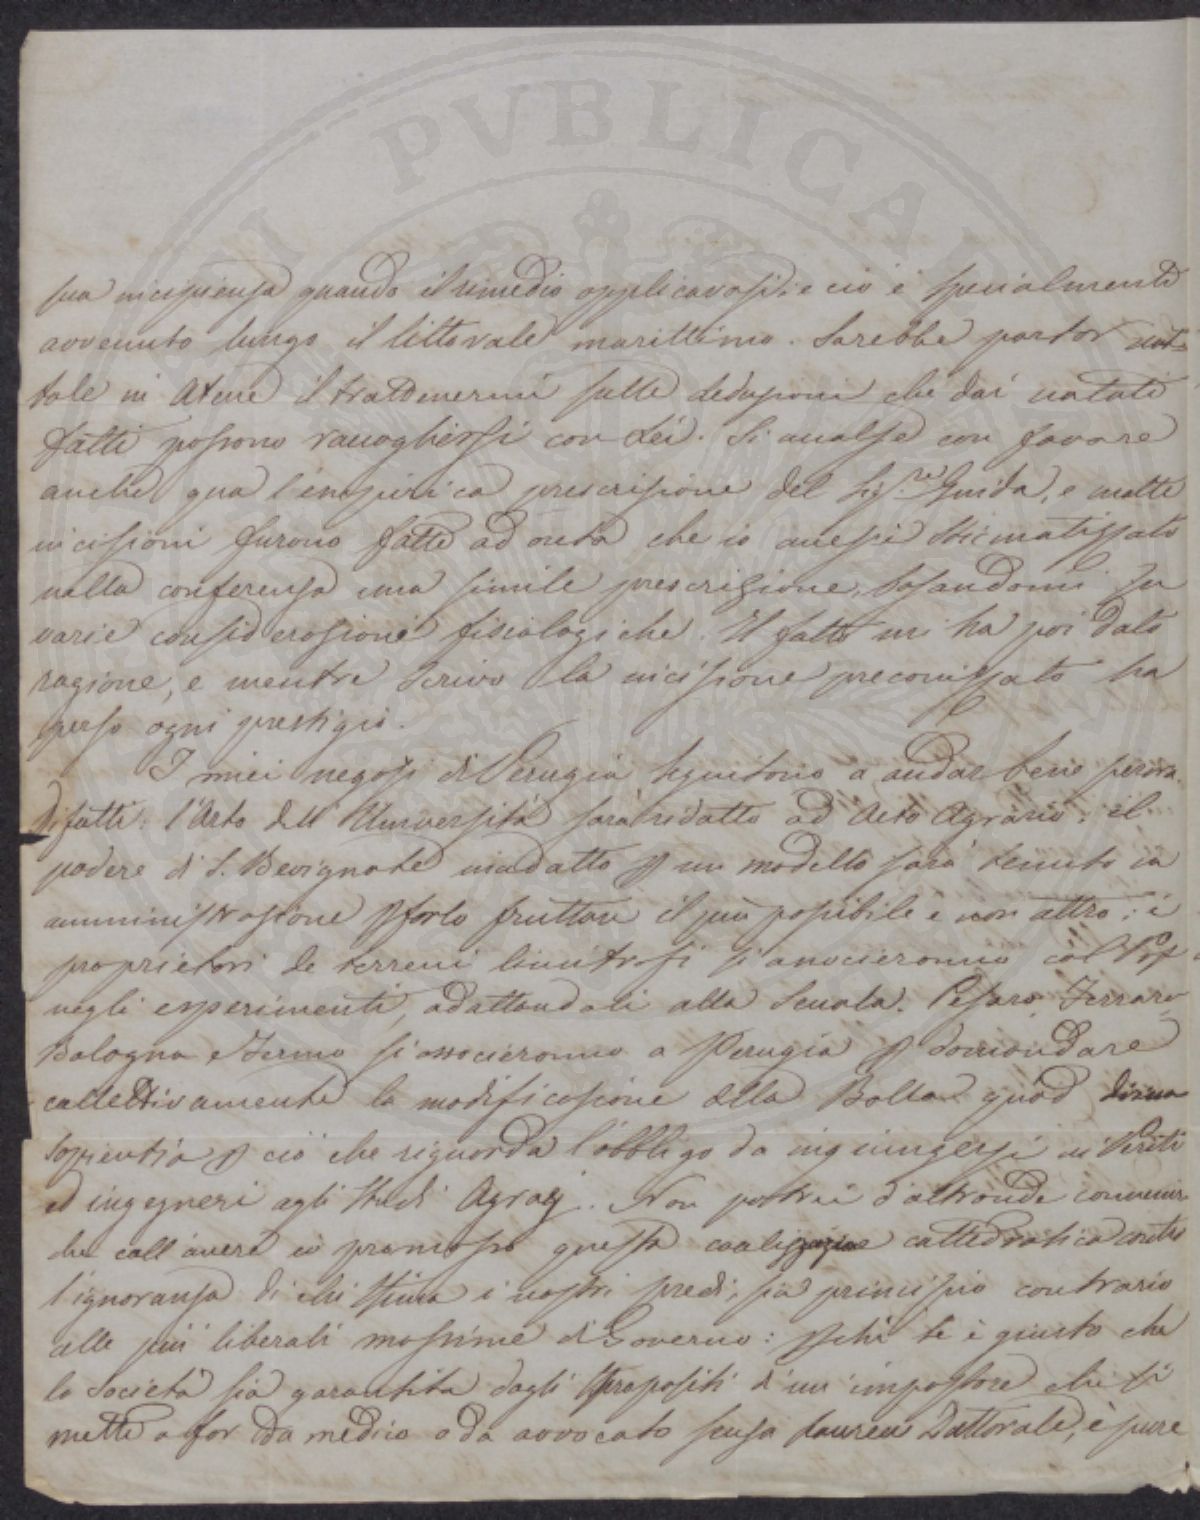 sua incipienza quando il rimedio applicavasi; e ciò è specialmente
avvenuto lungo il littorale marittimo. Sarebbe portar not-
tole in Atene il trattenermi sulle deduzioni che dai notati
fatti possono raccogliersi con Lei. Si accolse con favore
anche qua l'empirica prescrizione del Sig.re Guida, e molte
incisioni furono fatte ad onta che io avessi stimatizzato
nella conferenza una simile prescrizione, basandomi su
varie considerazioni fisiologiche. Il fatto mi ha poi dato
ragione, e mentre scrivo la incisione preconizzata ha
perso ogni prestigio.
I miei negozi di Perugia seguitono a andar bene perora.
Difatti: l'Orto dell'Università sarà ridotto ad Orto Agrario: il
podere di S. Bevignate inadatto p un modello sarà tenuto in
amministrazione p farlo fruttare il più possibile e non altro: i
proprietari de terreni limitrofi si associeranno col Prof
negli esperimenti, adattandoli alla Scuola. Pesaro, Ferrara,
Bologna e Fermo si associeranno a Perugia p domandare
collettivamente la modificazione della Bolla quod divina
sapientia p ciò che riguarda l'obbligo da ingiungersi ai Periti
ed ingegneri agli studi Agrarj. Non potrei d'altronde convenire
che coll'avere io promosso questa coalizione cattedratica contro
l'ignoranza di chi stima i nostri predi, sia principio contrario
alle più liberali massime di Governo: pchè se è giusto che
la Società sia garantita dagli spropositi d'un impostore che si
mette a far da medico o da avvocato senza laurea Dottorale, è pure